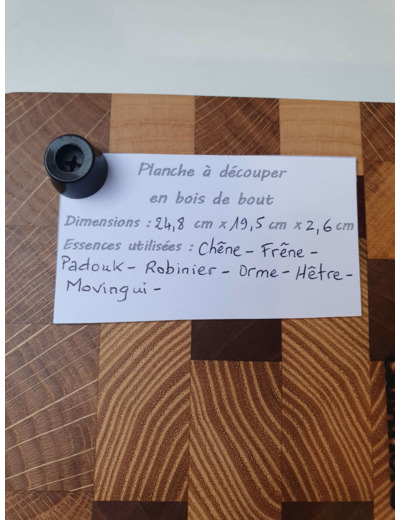 Planche à découper
en bois de bout
Dimensions : 24,8 cm x 19,5 cm x 2,6 cm
Essences utilisées : Chêne - Frêne -
Padouk - Robinier - Orme - Hêtre -
Movingui -